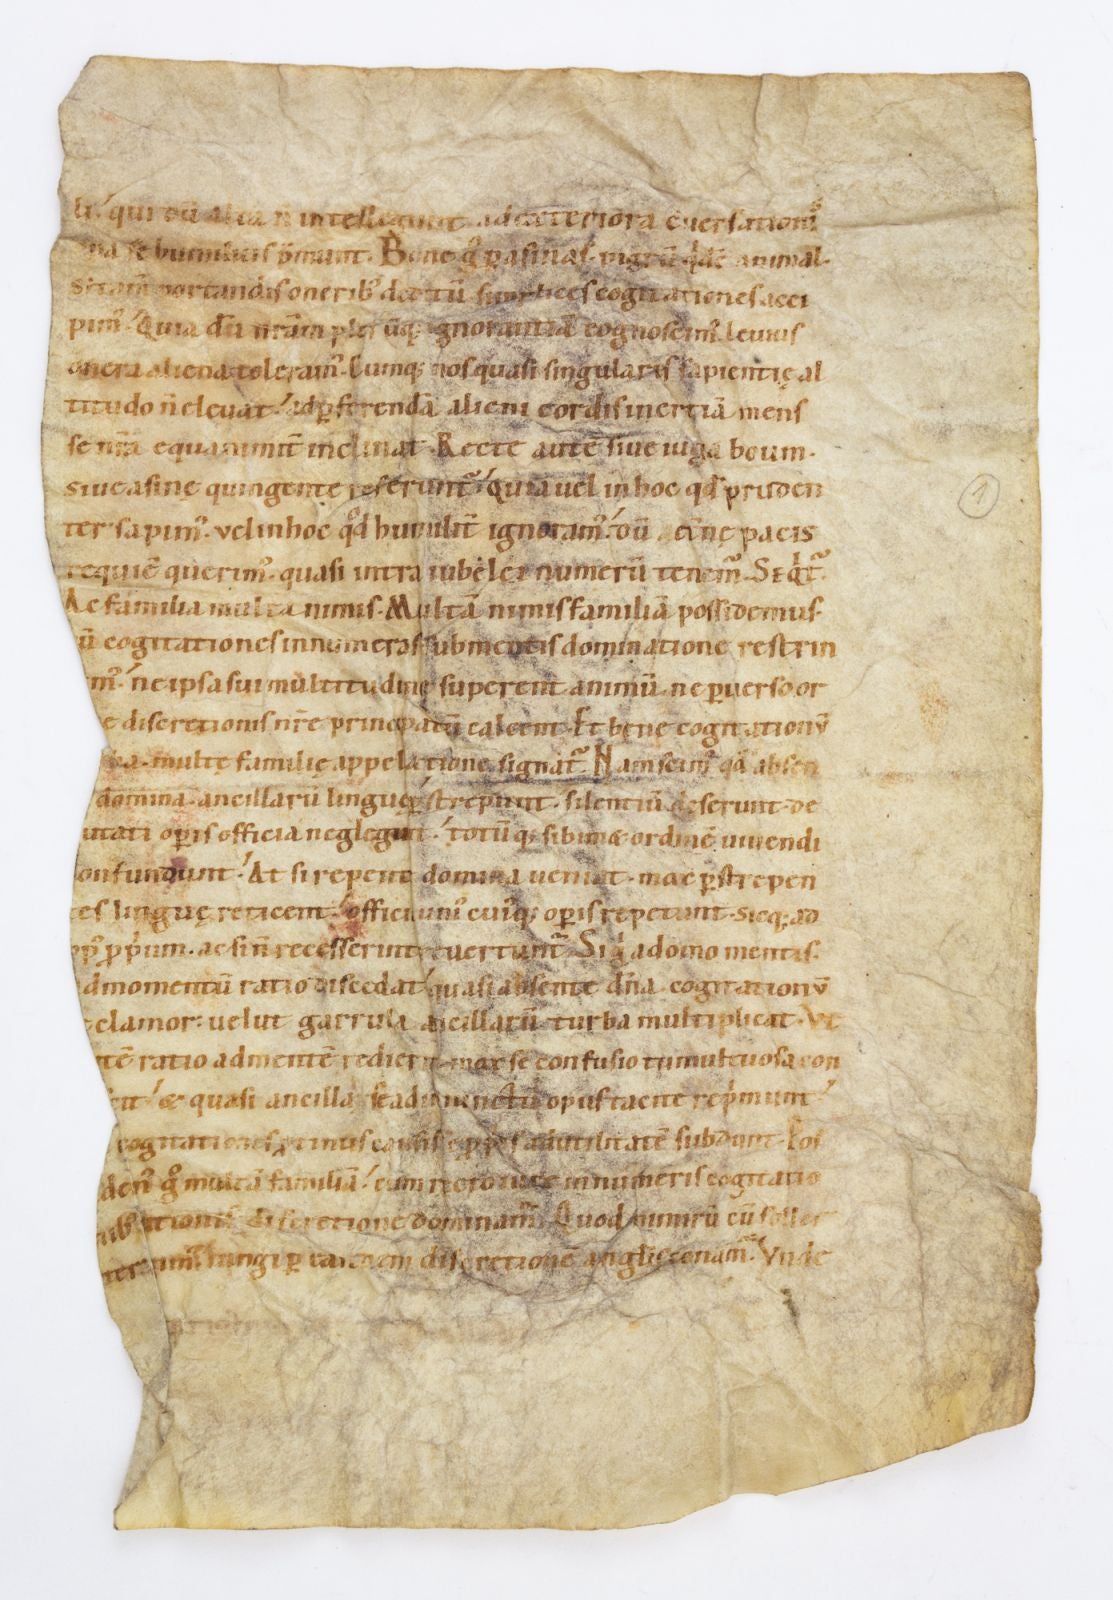 li. qui dū alta n̄ intellegunt ad exteriora c̄uersationis
se humilius p̄munt. Bene g̊ p̲ asinas. pigrū q̇dē animal.
s; tam̄ portandis onerib; deditū simplices cogitationes acci
pim᷒. Quia dū nr̄am pler ūq; ignorantiā cognoscim᷒. leuius
onera aliena toleram᷒. Cumq; nos quasi singularis sapientię al
titudo n̄ eleuat. ad p̲ferendā alieni cordis inertiā mens
se nr̄a equanimit̄ inclinat. Recte autē siue iuga boum.
siue asine quingente referunt᷑. Quia uel in hoc qđ pruden
ter sapim᷒. vel in hoc qđ humilit̄ ignoram᷒. dū ęt̄nę pacis
requiē querim᷒. quasi intra iubelei numerū tenem᷑. Seqt᷑.
Ac familia multa nimis. Multā nimis familiā possidemus.
ū cogitationes innumeras sub mentis dominatione restrin
m᷒. ne ipsa sui multitudine superent animū. ne p̲uerso or
e discretionis nr̄e principatū calcent. Et bene cogitationū
ba. multę familię appelatione signat᷑. Nam scim᷒ qđ absen
domina. ancillarū linguę p̲strepunt. silentiū deserunt. de
utati op̲is officia neglegunt. totūq; sibimet ordinē uiuendi
onfundunt. At si repente domina ueniat. mox p̲strepen
tes linguę reticent. officia uni᷒cui᷒q; op̲is repetunt. sicq; ad
op᷒ p̲p̲ium. ac si n̄ recesserint reuertunt᷑. Si g̊ a domo mentis.
d momentū ratio discedat. quasi absente dn̄a cogitationū
clamor. uelut garrula ancillarū turba multiplicat. Vt
tē ratio ad mentē redierit. mox se confusio tumultuosa con
cit. & quasi ancillę se ad iniunctū opus tacite rep̄munt.
cogitationes p̲tinus causis p̲p̲iis ad utilitatē subdunt. Pos
dem᷒ g̊ multā familiā. cum recto iure innumeris cogitatio
nib; rationis discretione dominam᷑. Quod nimirū cū soller
ter agim᷒. iungi p̲ eandem discretionē anglis conam᷑. Vnde
1